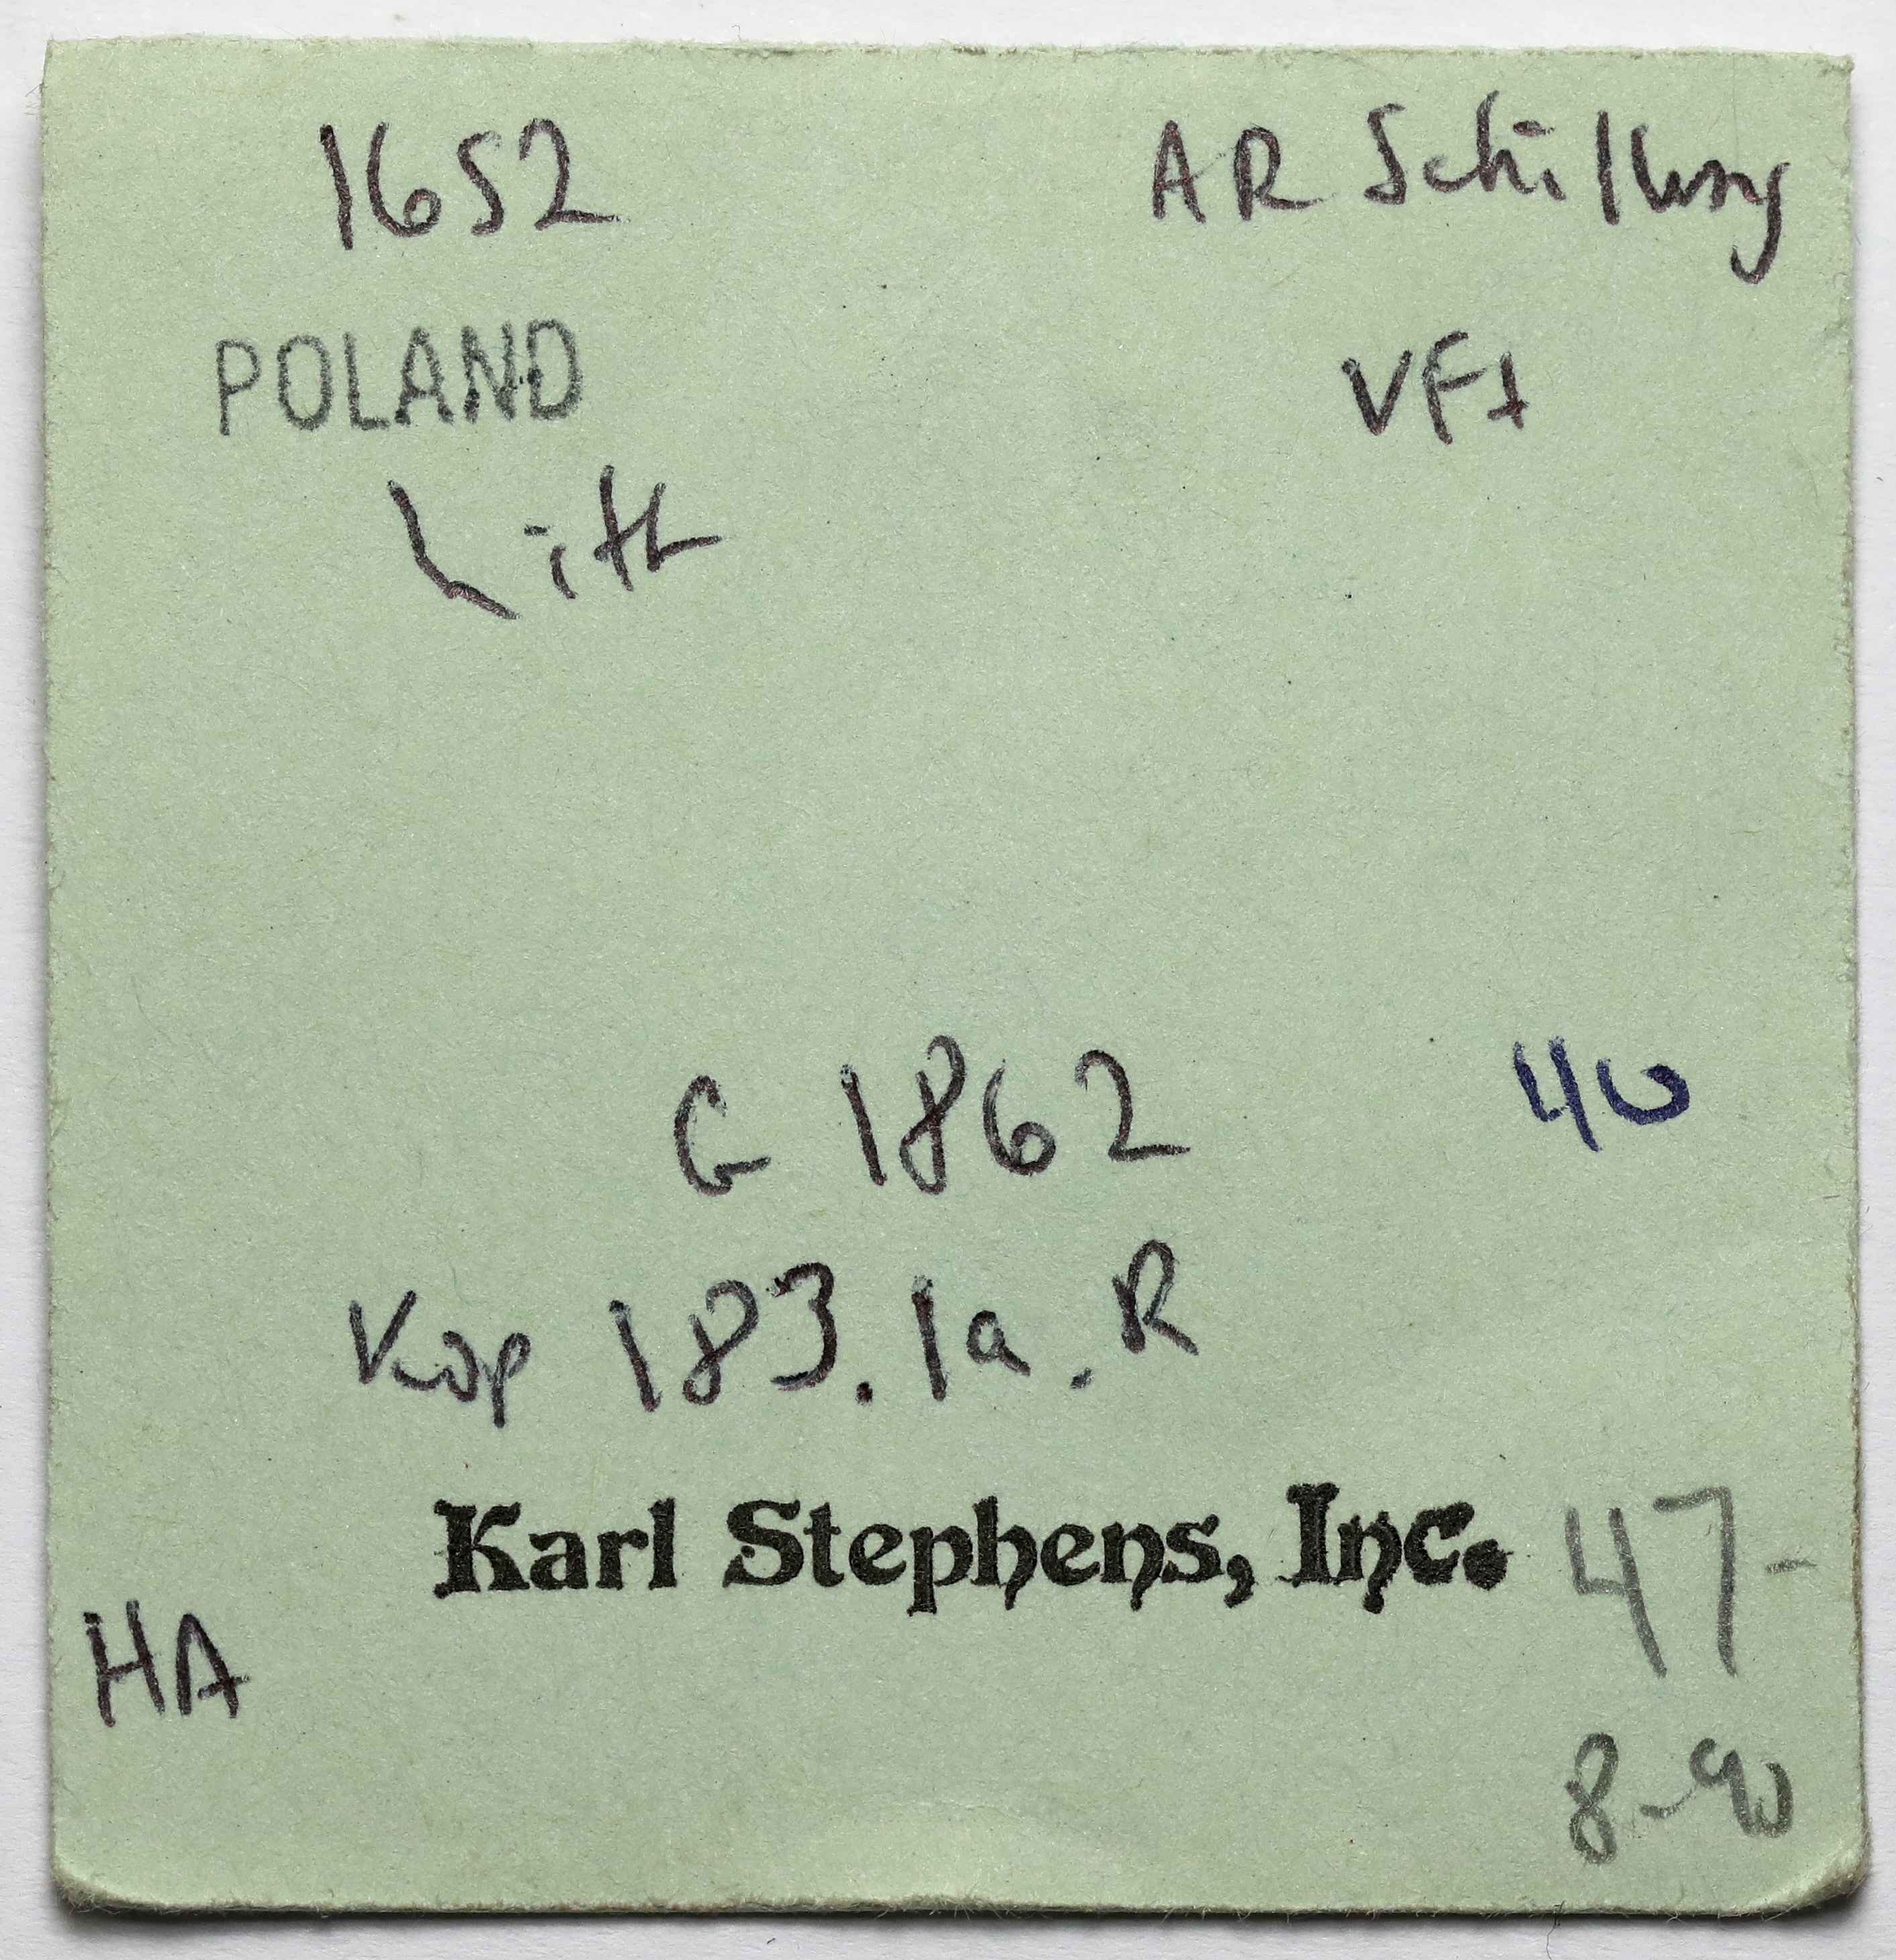 1652 AR Schilling
POLAND VF+
Lith
G 1862 40
Kop 183.1a.R
Karl Stephens, Inc. 47-
HA
8-90